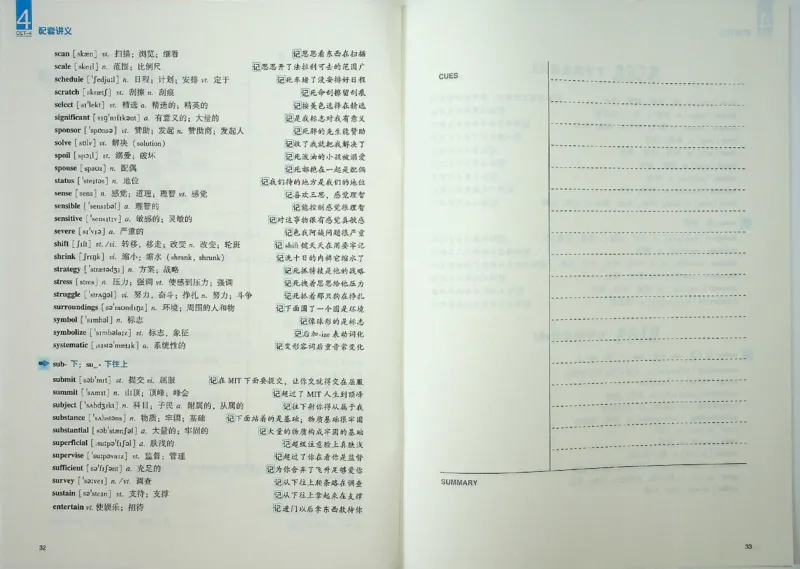 4
CET-4
配套讲义
scan [skæn] vt. 扫描；浏览；细看 记思思看东西在扫描
scale [skeɪl] n. 范围；比例尺 记思思开了法拉利可去的范围广
schedule [ˈʃedjuːl] n. 日程；计划；安排 vt. 定于 记死车堵了没安排好日程
scratch [skrætʃ] vt. 刮擦 n. 刮痕 记死命刮擦留刮痕
select [sɪˈlekt] vt. 精选 a. 精选的；精英的 记按美色选择在精选
significant [sɪɡˈnɪfɪkənt] a. 有意义的；大量的 记是我标志对我有意义
sponsor [ˈspɒnsə] vt. 赞助；发起 n. 赞助商；发起人 记死胖的先生能赞助
solve [sɒlv] vt. 解决（solution） 记收了我就把我解决了
spoil [spɔɪl] vt. 溺爱；破坏 记死泼油的小孩被溺爱
spouse [spaʊs] n. 配偶 记死都抱在一起是配偶
status [ˈsteɪtəs] n. 地位 记我们待的地方是我们的地位
sense [sens] n. 感觉；道理；理智 vt. 感觉 记喜欢三思，感觉理智
sensible [ˈsensɪbəl] a. 理智的 记能控制感觉很理智
sensitive [ˈsensɪtɪv] a. 敏感的；灵敏的 记对这事物很有感觉真敏感
severe [sɪˈvɪə] a. 严重的 记色我阿姨问题很严重
shift [ʃɪft] vt./vi. 转移，移走；改变 n. 改变；轮班 记 shift 键天天在用要牢记
shrink [ʃrɪŋk] vi. 缩小；缩水（shrank, shrunk） 记洗十日的内裤它缩水了
strategy [ˈstrætədʒɪ] n. 方案；战略 记死抓特技是他的战略
stress [stres] n. 压力；强调 vt. 使感到压力；强调 记死拽着思思给他压力
struggle [ˈstrʌɡəl] vi. 努力，奋斗；挣扎 n. 努力；斗争 记死抓着那只狗在挣扎
surroundings [səˈraʊndɪŋz] n. 环境；周围的人和物 记下面圈了一个圆是环境
symbol [ˈsɪmbəl] n. 标志 记像球形的是标志
symbolize [ˈsɪmbəlaɪz] vt. 标志，象征 记后加-ize 表动词化
systematic [ˌsɪstəˈmætɪk] a. 系统性的 记变形容词后重音常变化
sub- 下；su_- 下往上
submit [səbˈmɪt] vt. 提交 vi. 屈服 记在 MIT 下面要提交，让你交就得交在屈服
summit [ˈsʌmɪt] n. 山顶；顶峰；峰会 记超过了 MIT 人生到顶峰
subject [ˈsʌbdʒɪkt] n. 科目；子民 a. 附属的，从属的 记往下射你得从属于我
substance [ˈsʌbstəns] n. 物质；牢固；基础 记下面站着的是基础；物质基础很牢固
substantial [səbˈstænʃəl] a. 大量的；牢固的 记大量的物质构成牢固的基础
superficial [ˌsuːpəˈfɪʃəl] a. 肤浅的 记超级注意脸上真肤浅
supervise [ˈsuːpəvaɪz] vt. 监督；管理 记超过了你在看你是监督
sufficient [səˈfɪʃənt] a. 充足的 记为你舍弃了飞升足够爱你
survey [ˈsəːveɪ] n./vt. 调查 记从下往上轮条路在调查
sustain [səˈsteɪn] vt. 支持；支撑 记从下往上拿起来在支撑
entertain vt. 使娱乐；招待 记进门以后拿东西款待你
32
CUES
SUMMARY
33